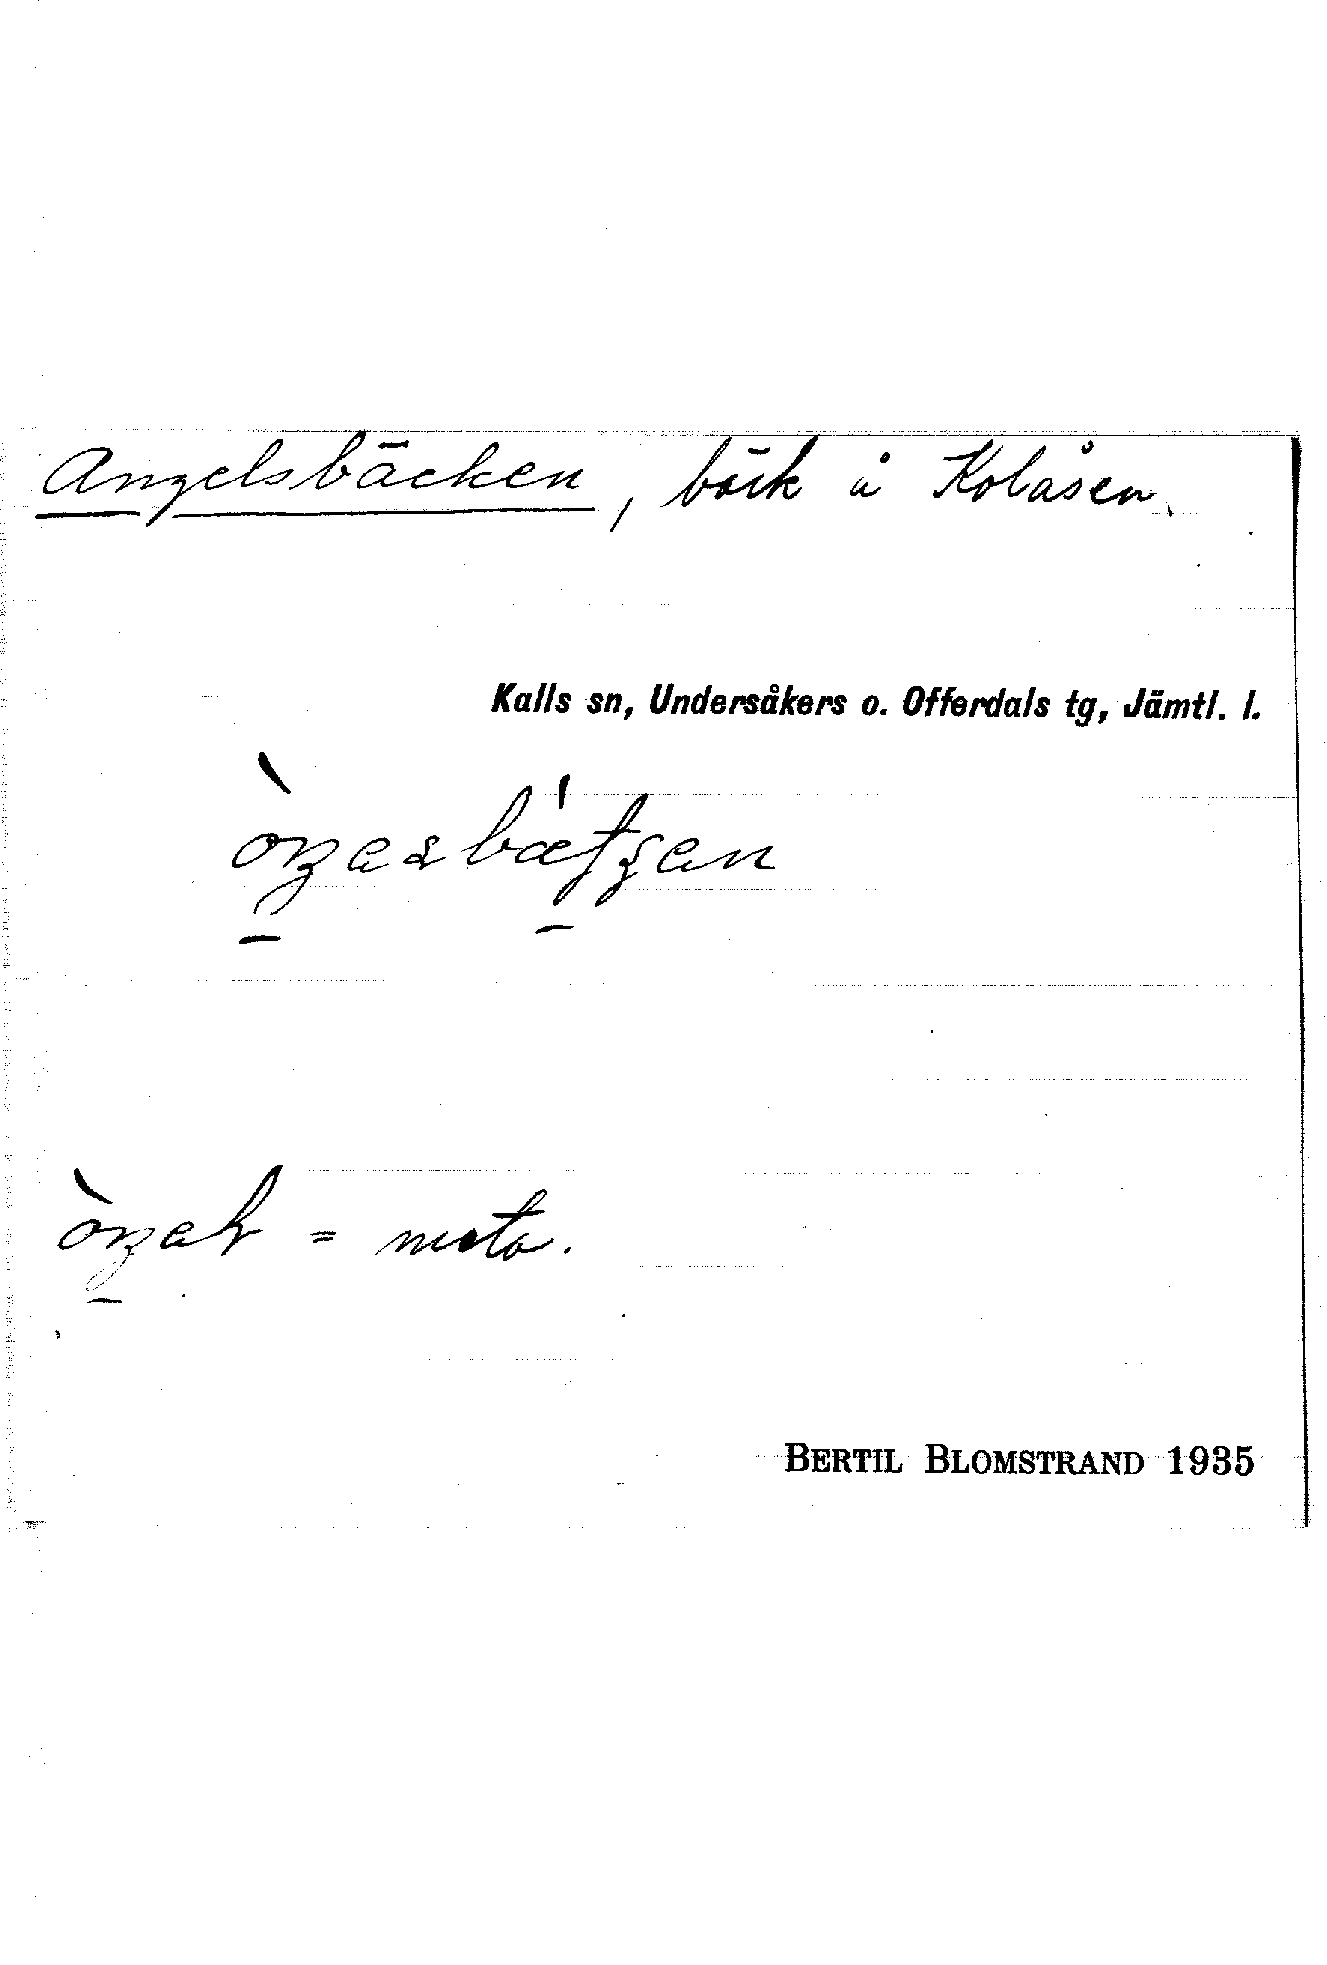 Angelsbäcken, bäck å Kolåsen.
Kalls sn, Undersåkers o. Offerdals tg, Jämtl. l.
= meta.
BERTIL BLOMSTRAND 1935